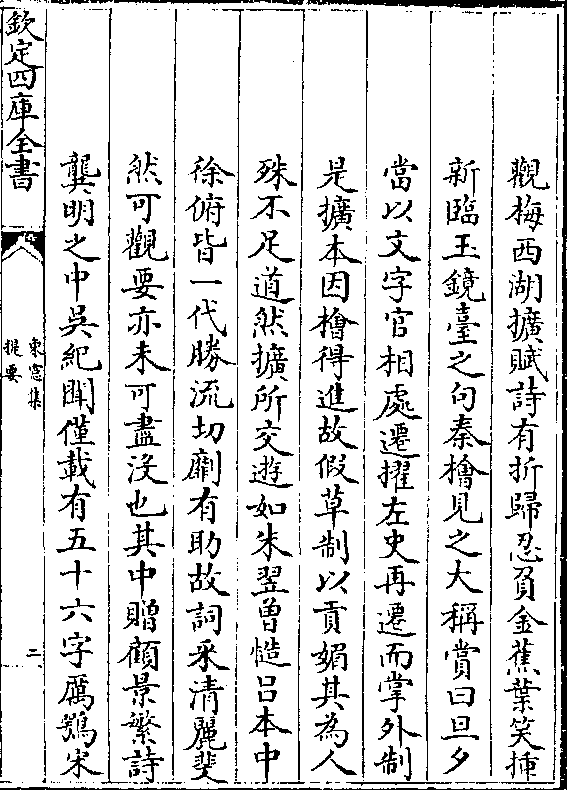 觀梅西湖擴賦詩有折歸忍負金蕉葉笑揷
新臨玉鏡臺之句秦檜見之大稱賞曰旦夕
當以文字官相處遷擢左史再遷而掌外制
是擴本因檜得進故假草制以貢媚其為人
殊不足道然擴所交遊如朱翌曾慥吕本中
徐俯皆一代勝流切劘有助故詞采清麗斐
然可觀要亦未可盡沒也其中贈顧景繁詩
龔明之中吳紀聞僅載有五十六字厲鶚宋
欽定四庫全書
東窻集
提要
二